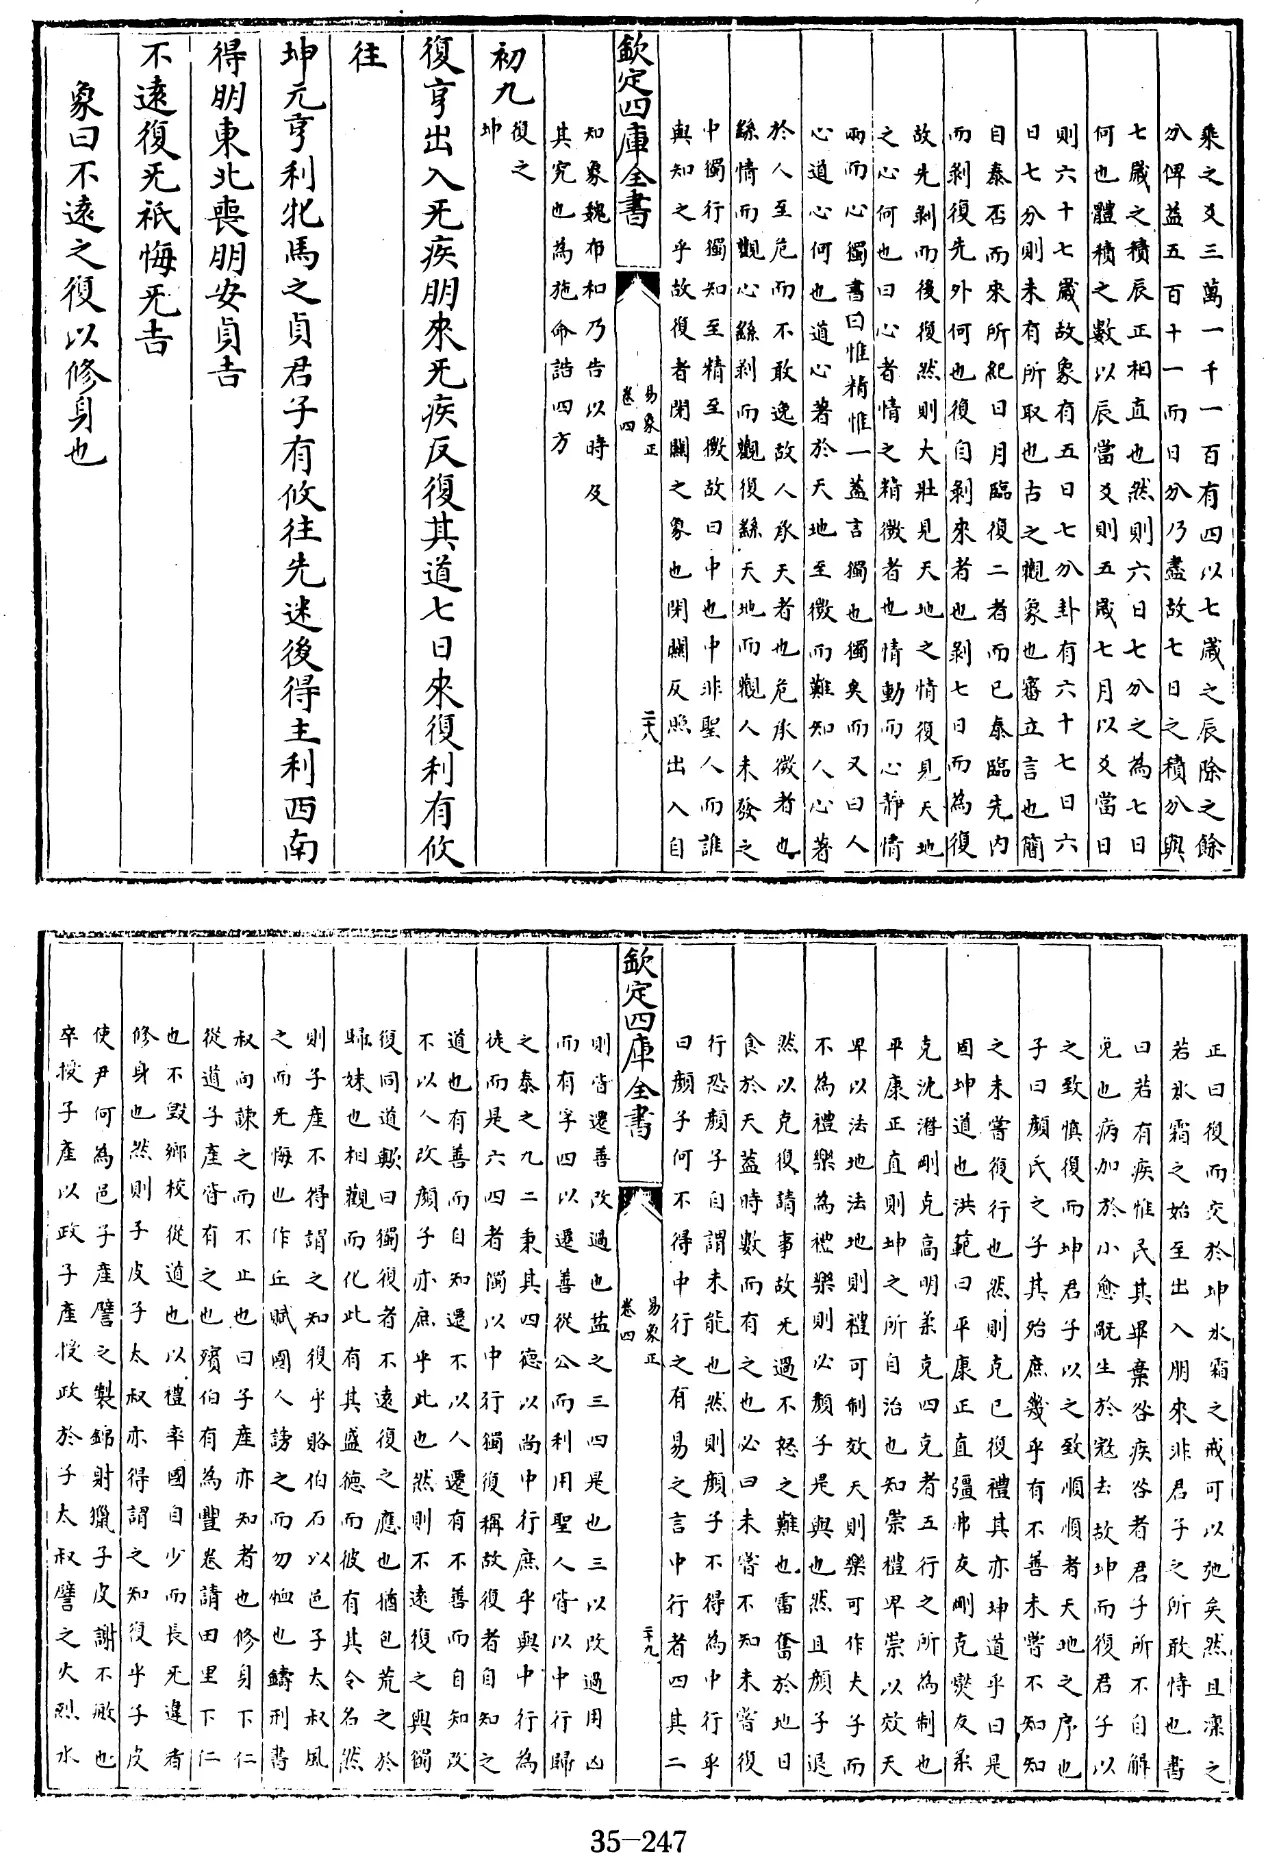 乘之爻三萬一千一百有四以七歲之辰除之餘
分俾益五百十一而日分乃盡故七日之積分與
七歲之積辰正相直也然則六日七分之為七日
何也體積之數以辰當爻則五歲七月以爻當日
則六十七歲故象有五日七分卦有六十七日六
日七分則未有所取也古之觀象也審立言也簡
自泰否而來所紀日月臨復二者而已泰臨先內
而剝復先外何也復自剝來者也剝七日而為復
故先剝而後復然則大壯見天地之情復見天地
之心何也曰心者情之精微者也情動而心靜情
兩而心獨書曰惟精惟一蓋言獨也獨矣而又曰人
心道心何也道心著於天地至微而難知人心著
於人至危而不敢逸故人承天者也危承微者也
繇情而觀心繇剝而觀復繇天地而觀人未發之
中獨行獨知至精至微故曰中也中非聖人而誰
與知之乎故復者閉關之象也閉關反照出入自
欽定四庫全書
易象正
卷四
二十八
知象魏布和乃告以時及
其究也為施命誥四方
初九復之
坤
復亨出入无疾朋來无疾反復其道七日來復利有攸
往
坤元亨利牝馬之貞君子有攸往先迷後得主利西南
得朋東北喪朋安貞吉
不遠復无祗悔元吉
象曰不遠之復以修身也
正曰復而交於坤氷霜之戒可以弛矣然且凜之
若氷霜之始至出入朋來非君子之所敢恃也書
曰若有疾惟民其畢棄咎疾咎者君子所不自解
免也病加於小愈眚生於怠去故坤而復君子以
之致慎復而坤君子以之致順順者天地之序也
子曰顏氏之子其殆庶幾乎有不善未嘗不知知
之未嘗復行也然則克己復禮其亦坤道乎曰是
固坤道也洪範曰平康正直彊弗友剛克燮友柔
克沈潛剛克高明柔克四克者五行之所為制也
平康正直則坤之所自治也知崇禮卑崇以效天
卑以法地法地則禮可制效天則樂可作夫子而
不為禮樂為禮樂則必顏子是與也然且顏子退
然以克復請事故无過不怒之難也雷奮於地日
食於天蓋時數而有之也必曰未嘗不知未嘗復
行恐顏子自謂未能也然則顏子不得為中行乎
曰顏子何不得中行之有易之言中行者四其二
欽定四庫全書
易象正
卷四
二十九
則皆遷善改過也益之三四是也三以改過用凶
而有孚四以遷善從公而利用聖人皆以中行歸
之泰之九二秉其四德以尚中行庶乎與中行為
徒而是六四者獨以中行獨復稱故復者自知之
道也有善而自知還不以人還有不善而自知改
不以人改顏子亦庶乎此也然則不遠復之與獨
復同道歟曰獨復者不遠復之應也猶包荒之於
歸妹也相觀而化此有其盛德而彼有其令名然
則子產不得謂之知復乎賂伯石以邑子太叔風
之而无悔也作丘賦國人謗之而勿恤也鑄刑書
叔向諫之而不止也曰子產亦知者也修身下仁
從道子產皆有之也殯伯有為豐卷請田里下仁
也不毀鄉校從道也以禮率國自少而長无違者
修身也然則子皮子太叔亦得謂之知復乎子皮
使尹何為邑子產譬之製錦射獵子皮謝不敏也
卒授子產以政子產授政於子太叔譬之火烈水
35-247